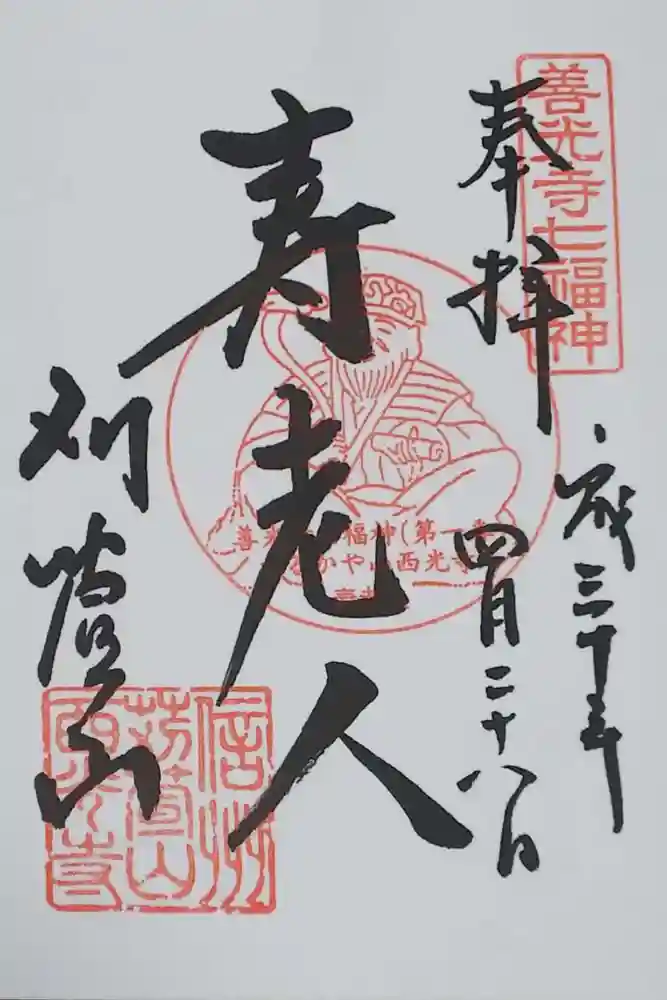 善光寺七福神
奉拝
平成三十年
四月二十八日
寿老人
善光寺七福神(第一番
かるかや山西光寺
寿老人
刈萱山
信州
苅萱山
西光寺